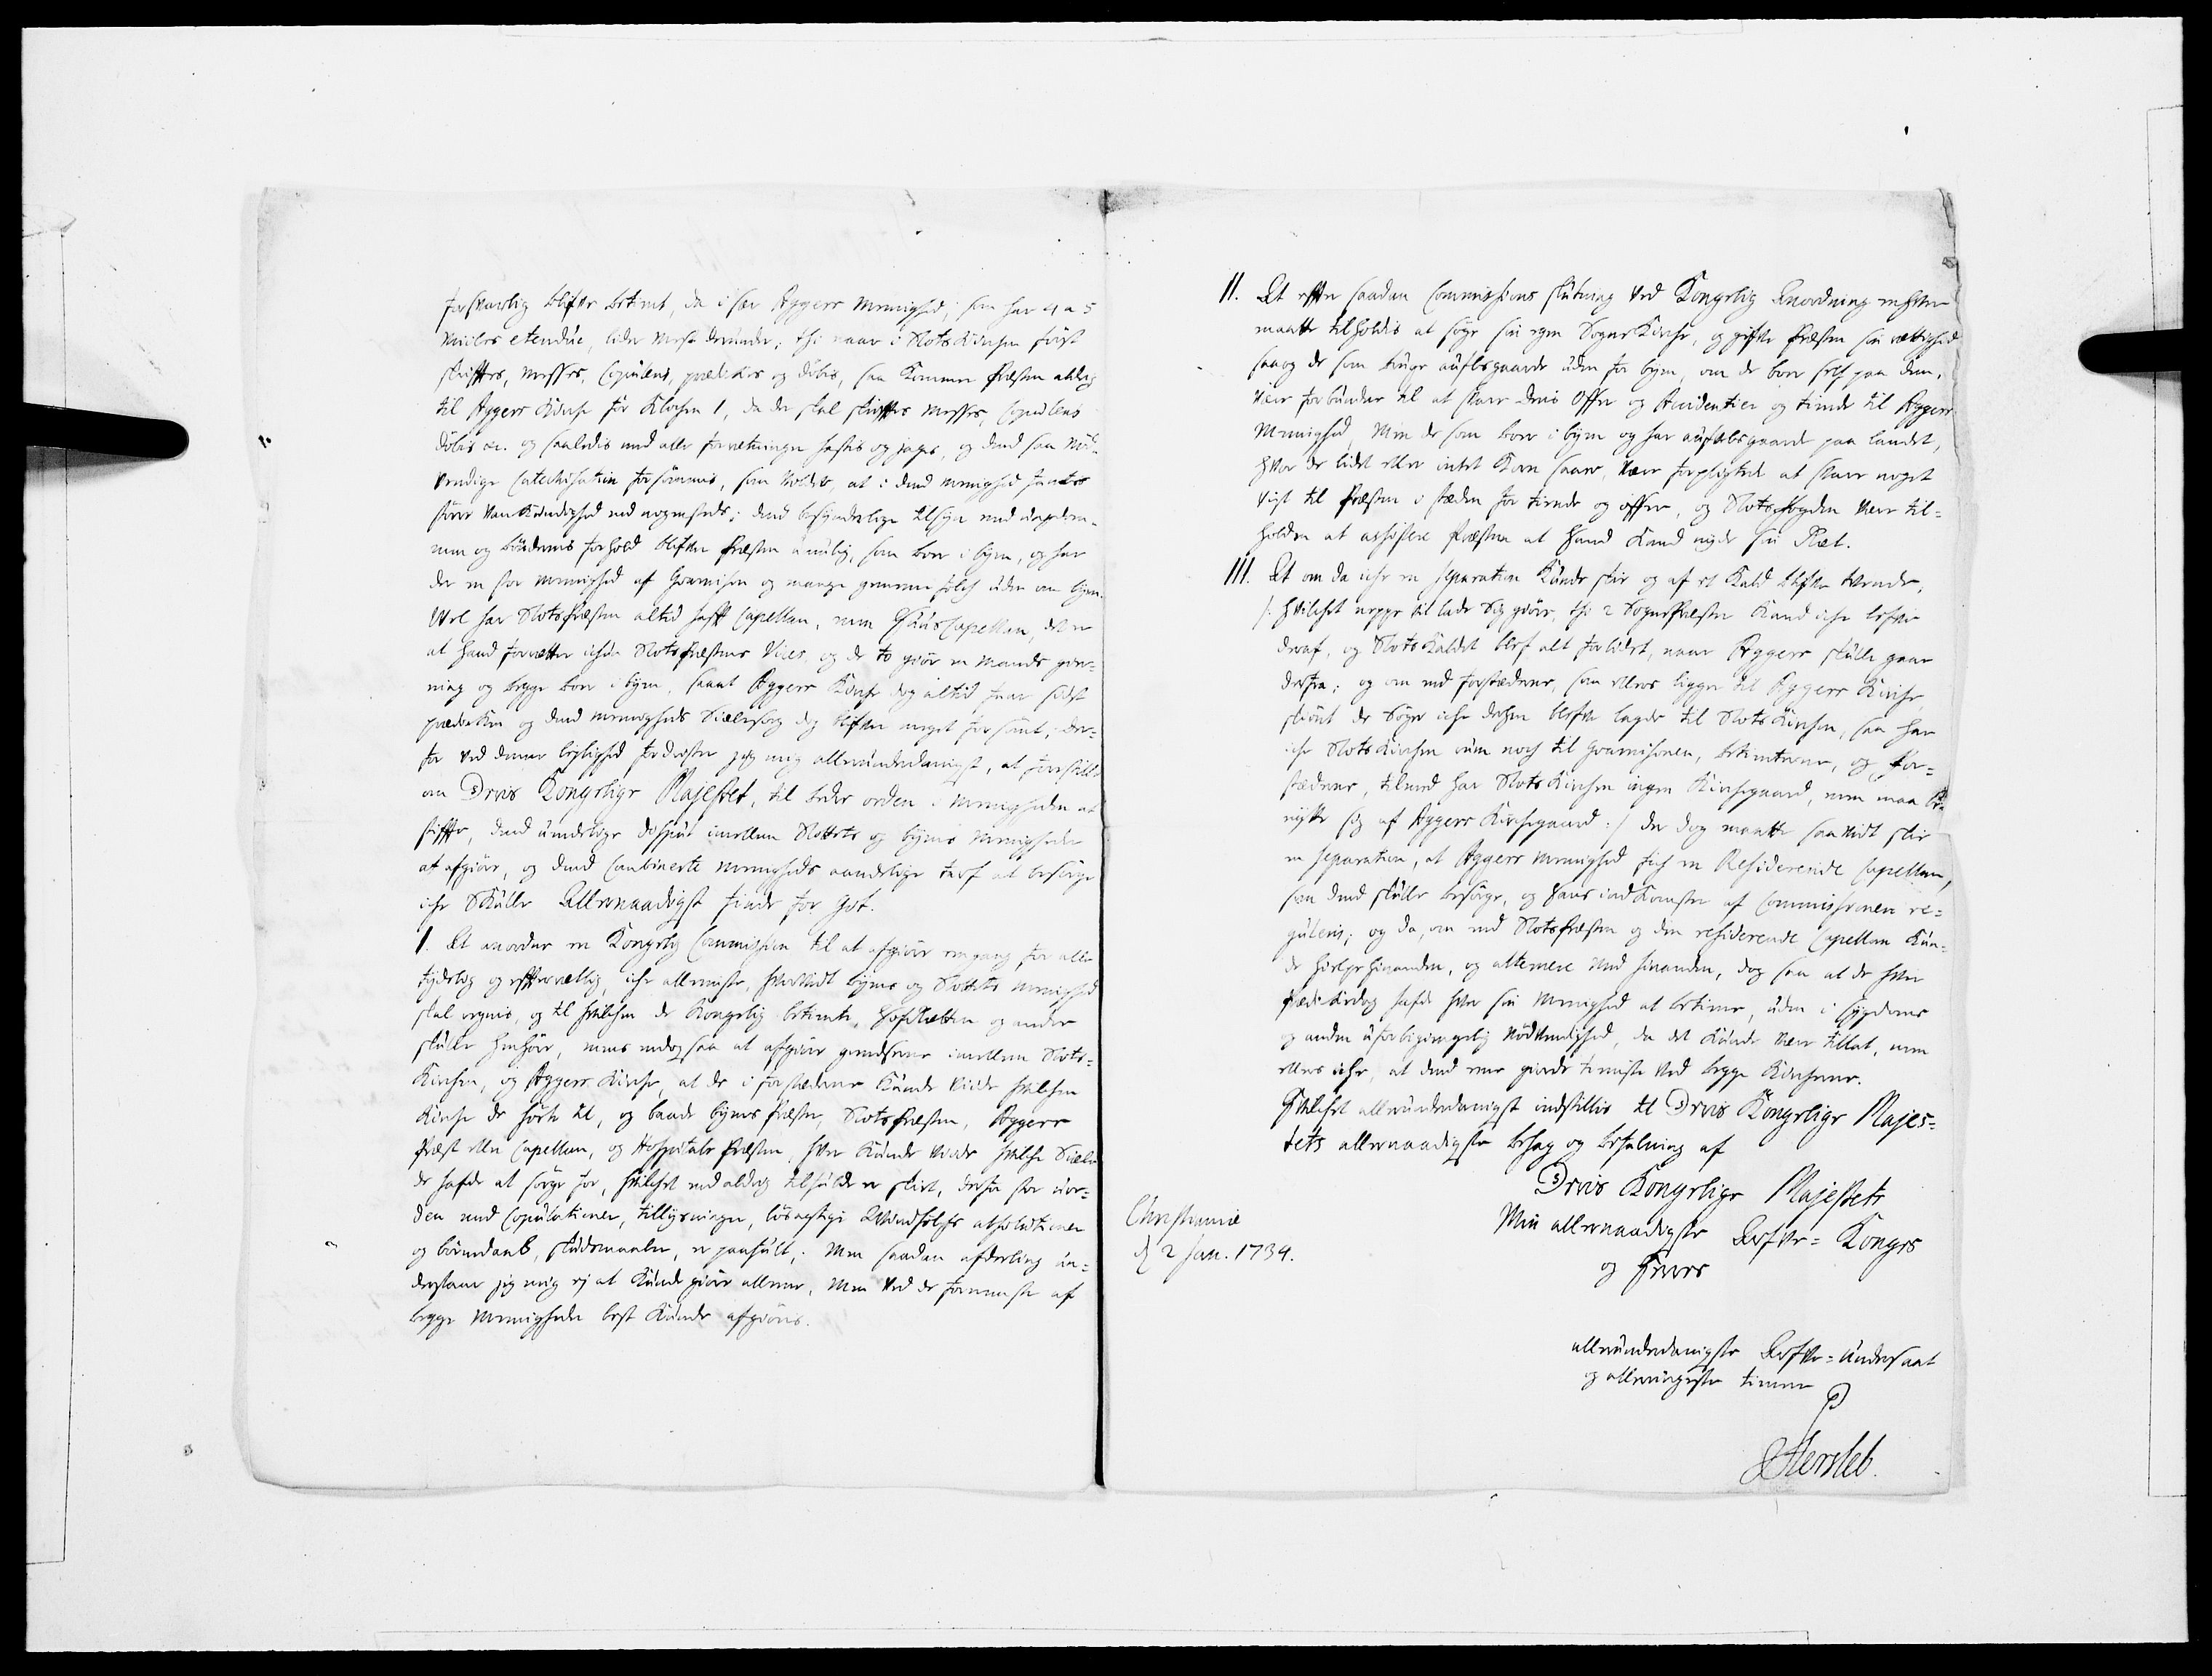 forsvarlig blifver betient, da i sær Aggers Menighed, som har 4 a 5
Miiles etendüe, lider mest derunder; thi naar i Slots Kirchen først
skrifftes, messes, Copuleris, prædikes og døbis, saa kommer Præsten aldrig
til Aggers Kirche før Klochen 1, da der skal skrifftes, messes, Copuleris
døbis etc. og saaledis med alle forretninger hastes og jages, og dend saa nød-
vendige Catechisation forsømmis, som volder, at i dend menighed findes
større vankundighed end nogensteds; dend besynderlige tilsyn med ungdom-
men og Bøndernis forhold blifver Præsten umulig, som boer i byen, og har
der en stor menighed af Guarnison og mange gemeene folch uden om byen.
Vel har Slotspræsten altid hafft Capellan, men HuusCapellan, det er
at hand forretter ichun Slotspræstens Vices, og de to giør en Mands gier-
ning og begge boer i byen, saa at Aggers Kirche dog altid faar sildest
prædiken og dend menigheds Siælesorg dog blifver meget forsømt; der-
for ved denne leylighed fordrister jeg mig allerunderdanigst, at forestille
om Deris Kongelige Majestet, til bedre orden i Menigheden at
stiffte, dend uendelige disput imellem Slottets og byens Menigheder
at afgiøre, og dend Combinerte menigheds aandelige tarf at besørge
iche Skulle Allernaadigst finde for Got.
1. At anordne en Kongelig Commission til at afgiøre engang for alle
tydelig og effterrettelig, iche alleniste, hvorvidt byens og Slottets menighed
skal regnis, og til hvilchen de Kongelig betiente, Hofrætten og andre
skulle henhøre, mens endog saa at afgiøre grendserne imellem Slots-
Kirchen, og Aggers Kirche, at de i forstæderne kunde viide hvilchen
Kirche de hørte til, og baade byens Præster, Slotspræsten, Aggers
Præst eller Capellan, og Hospitals Præsten, hver kunde vide hvilche Siæle
de hafde at sørge for, hvilchet end aldrig tilfulde er skeet, derfor stor uor-
den med Copulationer, tillysninger, løsagtige Qvindfolches absolutioner
og barnedaab, skudsmaaler, er paafult; Men saadan afdeeling un-
derstaar jeg mig ej at kunde giøre alleene, Men ved de fornemste af
begge Menigheder best kunde afgiøris.
11. At effter saadan Commissions slutning ved Kongelig Anordning enhver
maatte tilholdis at søge sin egen Sogne Kirche, og gifve Præsten sin rettighed
saa og de som bruge aufelsgaarde uden for byen, om de boer self paa dem,
være forbunden til at svare deris Offer og Accidentier og tiende til Aggers
Menighed, Men de som boer i byen og har aufelsgaard paa landet,
hvor de lidet eller intet Korn saaer, være forpligtede at svare noget
vist til Præsten i stæden for tiende og offer, og Slotsfogden være til-
holden at assistere Præsten at hand kand nyde sin Ræt.
111. At om da iche en separation kunde skee og af et Kald blifve tvende,
/: hvilchet neppe vil lade sig giøre, thi 2 Sognepræster kand iche lefve
deraf, og Slots Kaldet blef alt for lidet, naar Aggers skulle gaae
derfra; og om end forstæderne, som ellers ligger til Aggers Kirche
skiønt de Søger iche derhen blefve lagde til Slots Kirchen, saa har
iche Slots Kirchen rum noch til Guarnisonen, betienterne, og for-
stæderne, tilmed har Slots Kirchen ingen Kirchegaard, men maa be-
nytte sig af Aggers Kirchegaard :/ der dog maatte saavidt skee
en separation, at Aggers menighed fich en Residerende Capellan,
som dend skulle besørge, og hans indkomster af Commissionen re-
guleris; og da, om end Slotspræsten og den residerende Capellan kun-
de hielpe hinanden, og alternere med hinanden, dog saa at de hver
Prædikedag hafde hver sin Menighed at betiene, uden i sygdoms
og anden uforbigiengelig nødvendighed, da det kunde være tillat, men
ellers iche, at dend eene giorde tieniste ved begge Kircherne.
Hvilchet allerunderdanigst indstillis til Deris Kongelige Majes-
tets allernaadigste behag og befalning af
Deris Kongelige Majestets
Min allernaadigste Arfve-Konges
og Herres
Christiania
d 2 Jan. 1734.
allerunderdanigste Arfve-Undersaat
og allerringeste tiener
P Hersleb.